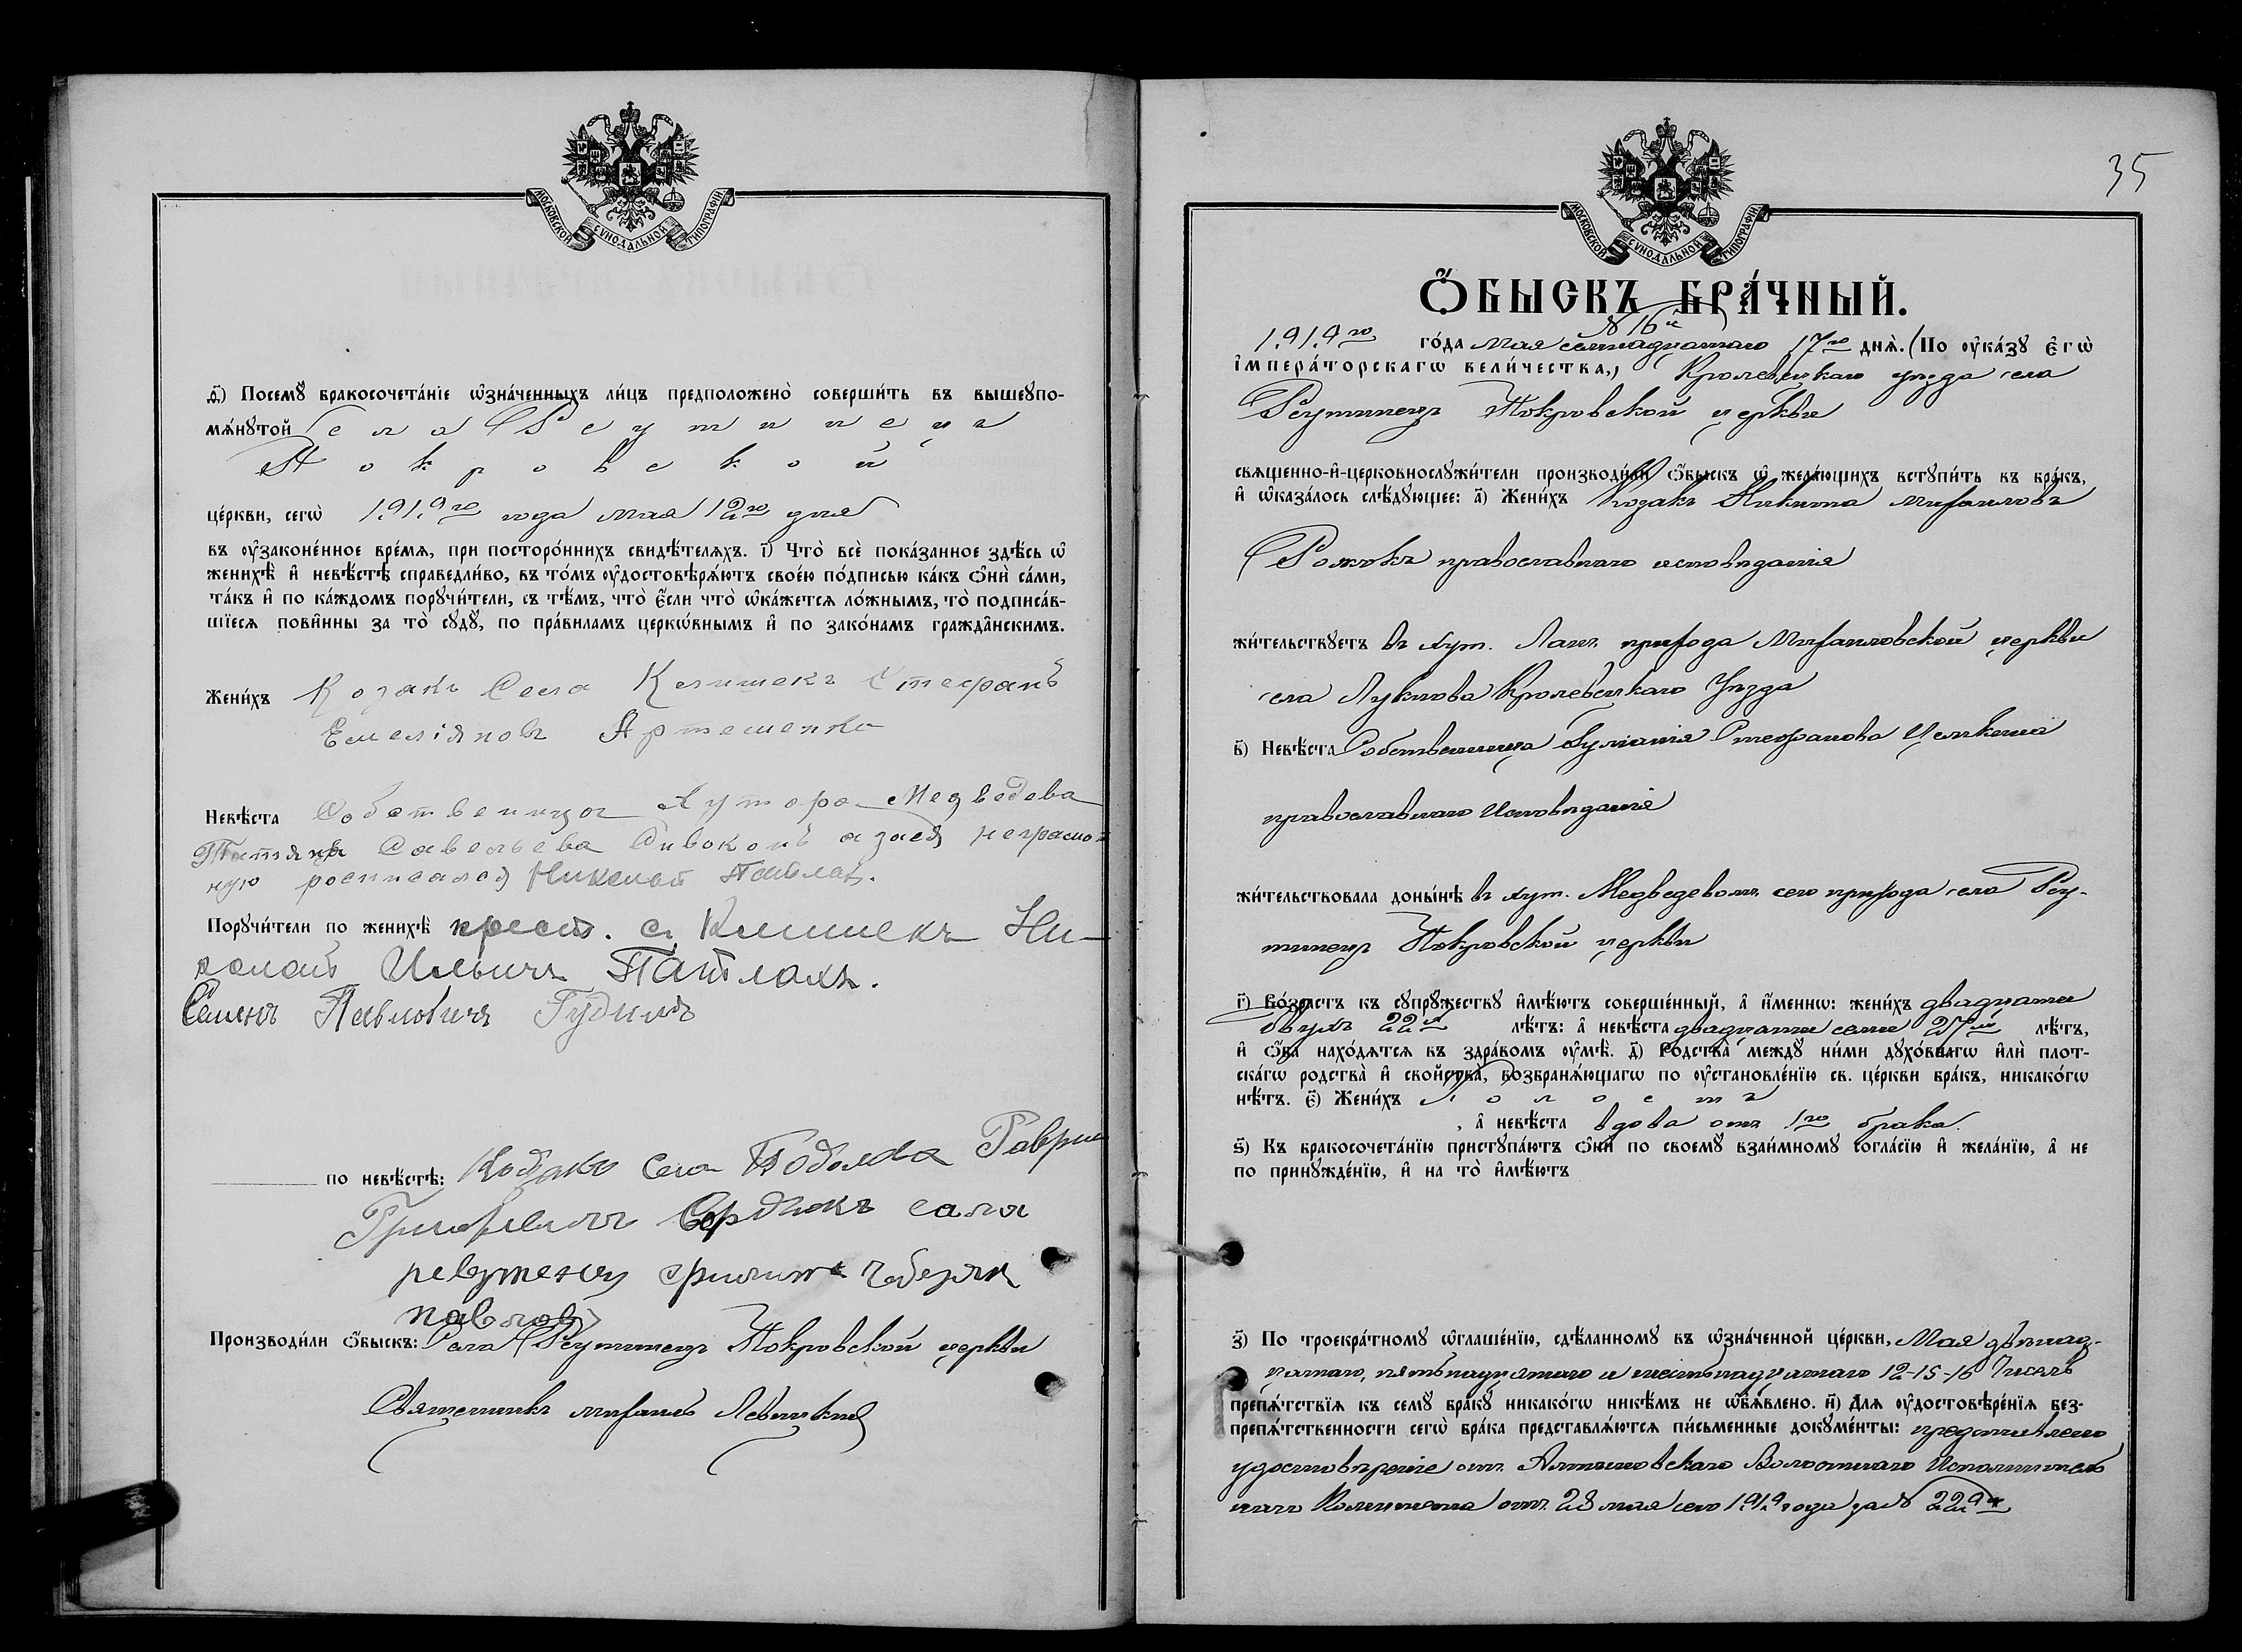 МОСКОВСКОЙ СѴНОДАЛЬНОЙ ТИПОГРАФІИ
ѳ҃) Посемꙋ̀ бракосочета́нїе ѡ҆зна́ченныхъ ли́цъ предположено̀ соверши́ть въ вышеꙋпо-
мѧ́нꙋтой Села Реутинецъ
Покровской
це́ркви, сегѡ̀ 1919го года мая 12го дня
въ ᲂу҆законе́нное вре́мѧ, при посторо́ннихъ свидѣ́телѧхъ. і҃) Что̀ всѐ пока́занное здѣ́сь ѡ҆
женихѣ̀ и҆ невѣ́стѣ справедли́во, въ то́мъ ᲂу҆достовѣрѧ́ютъ свое́ю по́дписью ка́къ ѻ҆нѝ са́ми,
та́къ и҆ по ка́ждомъ порꙋчи́тели, съ тѣ́мъ, что̀ є҆́сли что̀ ѡ҆ка́жетсѧ ло́жнымъ, то̀ подписа́в-
шїесѧ пови́нны за то̀ сꙋдꙋ̀, по пра́виламъ церкѡ́внымъ и҆ по зако́намъ гражда̂нскимъ.
Жени́хъ Козакъ Села Клишекъ Стефанъ
Емеліяновъ Артеменко
Невѣ́ста Собственица Хутора Медведева
Татяна Савельева Сивоконь а за нея неграмот
ную росписался Николай Патлах.
Порꙋчи́тели по женихѣ̀ крест. с. Клишекъ Ни-
колай Ильичъ Патлахъ.
Семенъ Павловичъ Гудимъ
по невѣ́стѣ: Козакъ Села Подолова Гаврил
Григорьевичъ Сердюкъ села
ревутенец филипъ
павловъ
Производи́ли ѻ҆́быскъ: Села Реутинецъ Покровской церкви
Священникъ Михаилъ Левицкій
35
МОСКОВСКОЙ СѴНОДАЛЬНОЙ ТИПОГРАФІИ
Ѻ҆́БЫСКЪ БРА́ЧНЫЙ.
№ 16й
1919го го́да мая семнадцатаго 17го днѧ̀. (По ᲂу҆ка́зꙋ є҆гѡ̀
і҆мпера́торскагѡ вели́чества,) Кролевецкаго уѣзда села
Реутинецъ Покровской церкви
свѧщенно-и҆-церковнослꙋжи́тели производи́ли ѻ҆́быскъ ѡ҆ жела́ющихъ встꙋпи́ть въ бра́къ,
и҆ ѡ҆каза́лось слѣ́дꙋющее: а҃) Жени́хъ Козакъ Никита Михаиловъ
Рожокъ православнаго исповѣданія
жи́тельствꙋетъ въ хут. прихода Михаиловской церкви
села Лукнова Кролевецкаго Уѣзда
в҃) Невѣ́ста Собственница Стефанова
православнаго Исповѣданія
жи́тельствовала доны́нѣ въ хут. Медведевомъ сего прихода села Реу-
тинецъ Покровской церкви
г҃) Во́зрастъ къ сꙋпрꙋ́жествꙋ и҆мѣ́ютъ соверше́нный, а҆ и҆́меннѡ: жени́хъ двадцати
двухъ 22хъ лѣ́тъ: а҆ невѣ́ста двадцати семи 27ми лѣ́тъ,
и҆ ѻ҆́ба нахо́дѧтсѧ въ здра́вомъ ᲂу҆мѣ̀. д҃) Родства̀ междꙋ̀ ни́ми дꙋхо́внагѡ и҆лѝ плот-
ска́гѡ родства̀ и҆ свойства̀, возбранѧ́ющагѡ по ᲂу҆становле́нїю св. це́ркви бра́къ, никако́гѡ
нѣ́тъ. є҃) Жени́хъ холостъ
, а҆ невѣ́ста вдова отъ 1го брака.
ѕ҃) Къ бракосочета́нїю пристꙋпа́ютъ ѻ҆нѝ по своемꙋ̀ взаи́мномꙋ согла́сїю и҆ жела́нїю, а҆ не
по принꙋжде́нїю, и҆ на то̀ и҆мѣ́ютъ
з҃) По троекра́тномꙋ ѡ҆глаше́нїю, сдѣ́ланномꙋ въ ѡ҆зна́ченной це́ркви, Мая двѣнад-
цатаго, пятьнадцатаго и шестьнадцатаго 12-15-16 Чиселъ
препѧ́тствїѧ къ семꙋ̀ бра́кꙋ никако́гѡ никѣ́мъ не ѡ҆б̾ѧ́влено. и҃) Длѧ ᲂу҆достовѣре́нїѧ без-
препѧ́тственности сегѡ̀ бра́ка представлѧ́ютсѧ пи́сьменные докꙋме́нты: представлено
удостовѣреніе отъ Алтыновскаго Волостнаго Исполнитель
наго Комитета отъ 28 мая сего 1919 года за № 229м